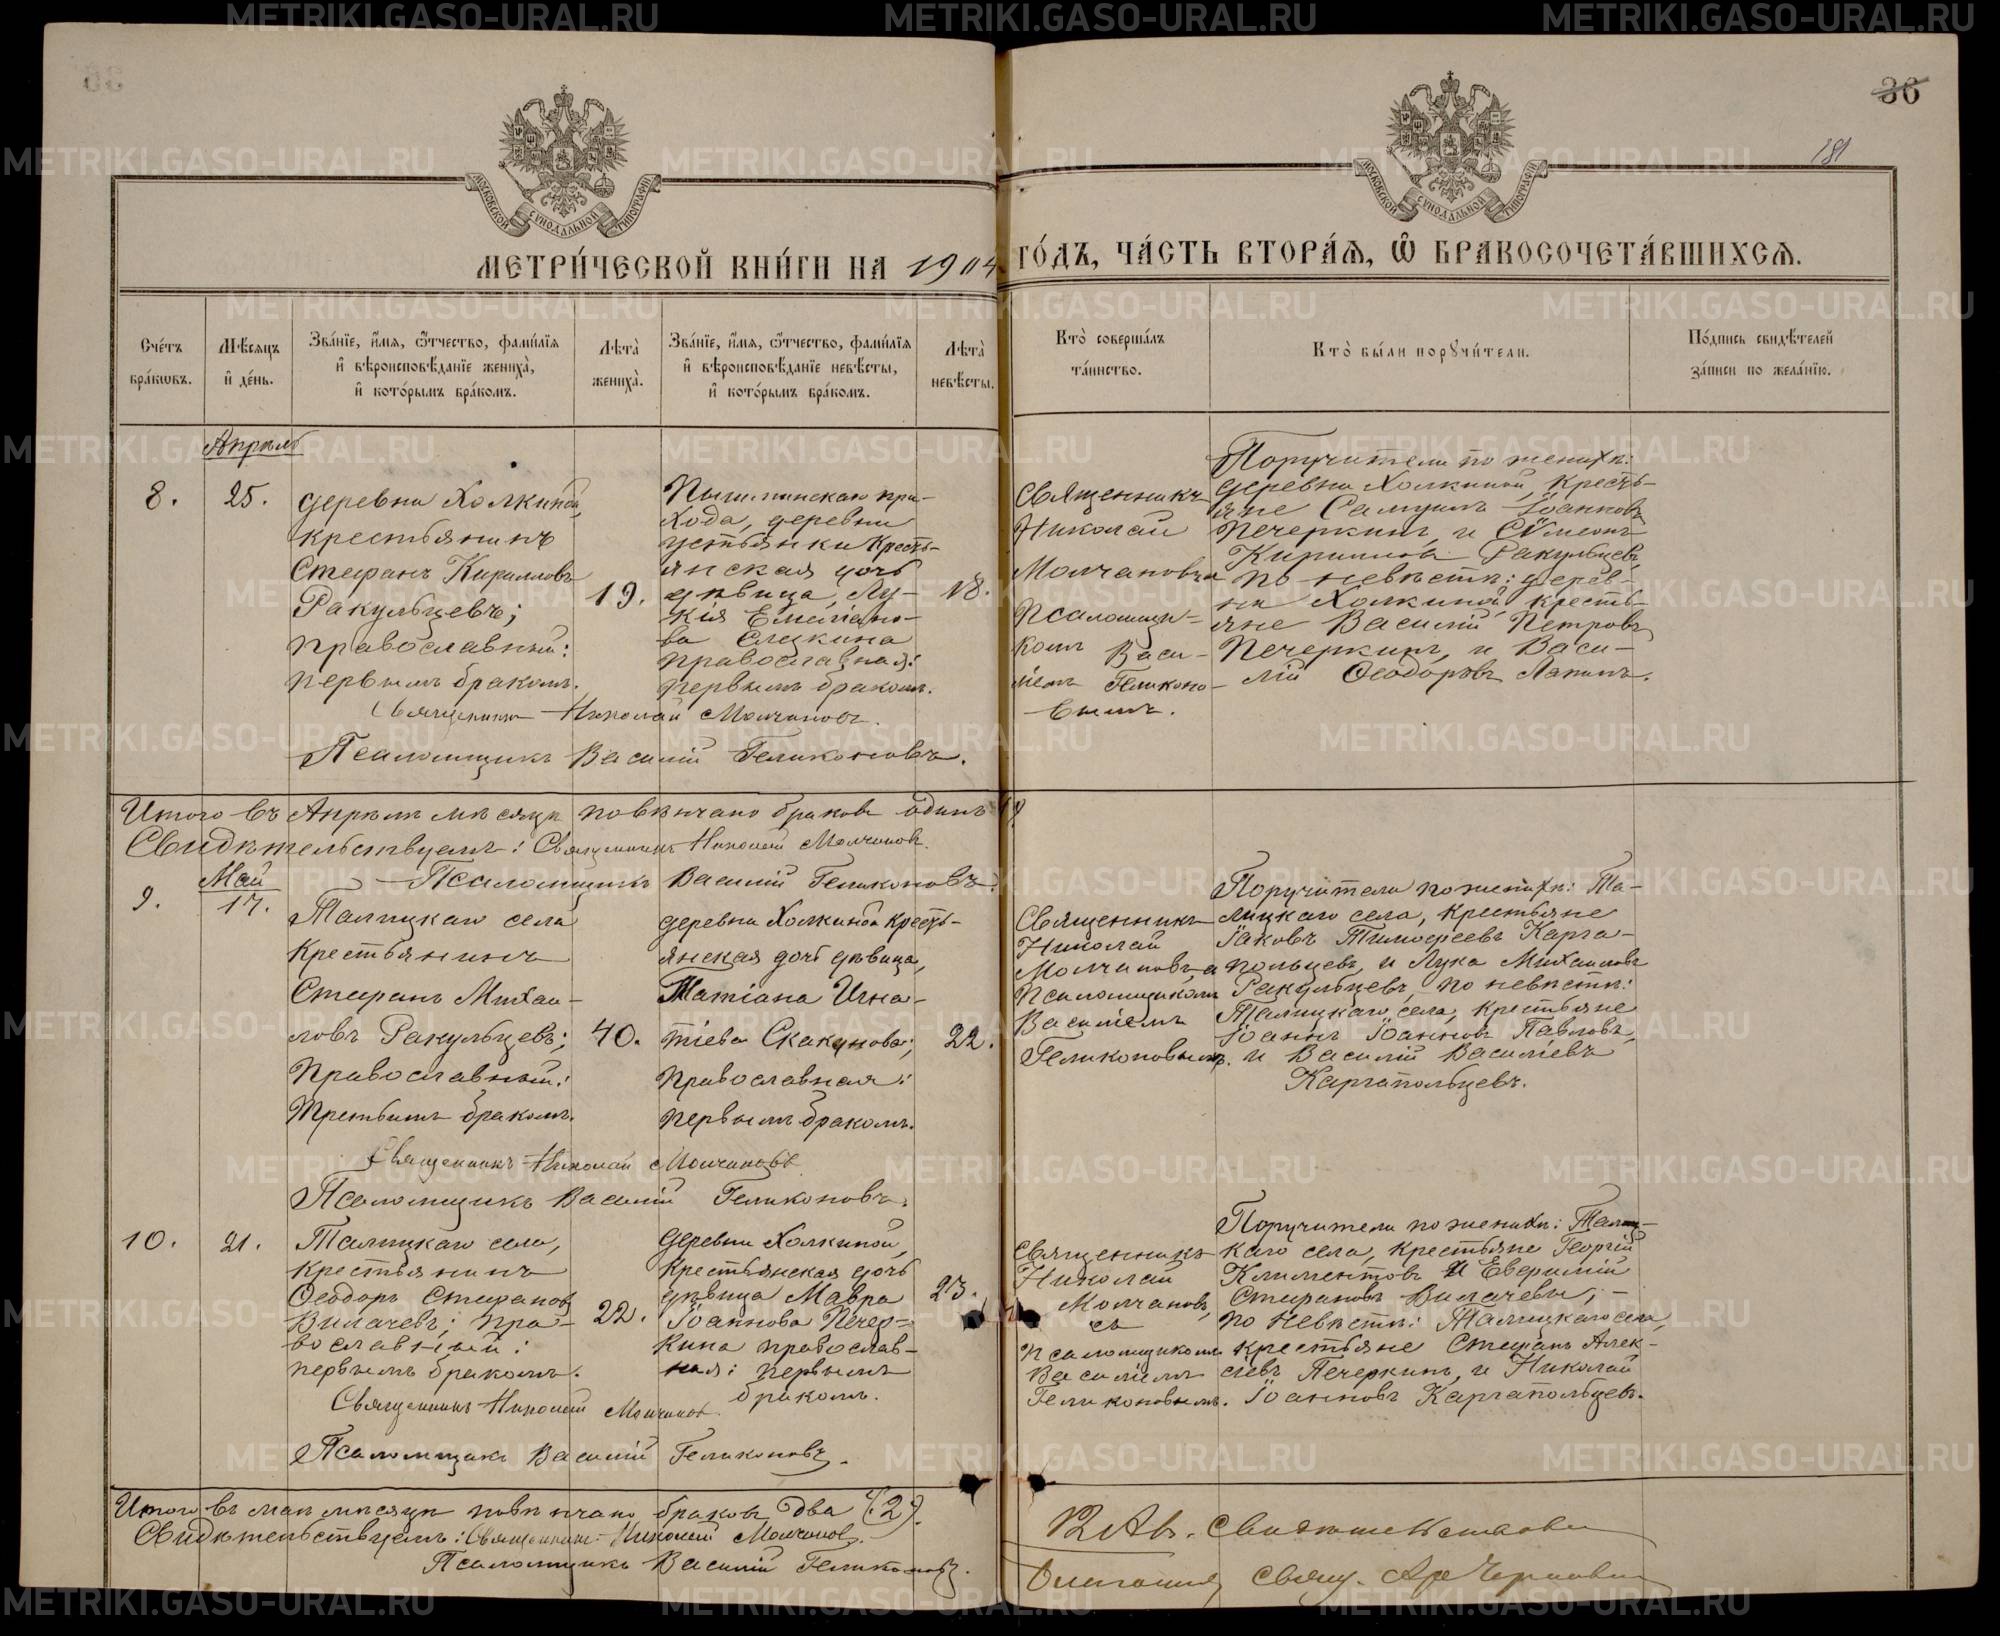 36
181
МОСКОВСКОЙ СѴНОДАЛЬНОЙ ТИПОГРАФІИ
МОСКОВСКОЙ СѴНОДАЛЬНОЙ ТИПОГРАФІИ
МЕТРИ́ЧЕСКОЙ КНИ́ГИ НА 1904 ГО́ДЪ, ЧА́СТЬ ВТОРА́Ѧ, Ѽ БРАКОСОЧЕТА́ВШИХСѦ.
Сче́тъ
бра́кѡвъ.
Мѣ́сяцъ
и҆ де́нь.
Зва́нїе, и҆́мѧ, ѻ҆́тчество, фами́лїѧ
и҆ вѣроисповѣ́данїе жениха̀,
и҆ кото́рымъ бра́комъ.
Лѣта̀
жениха̀.
Зва́нїе, и҆́мѧ, ѻ҆́тчество, фами́лїѧ
и҆ вѣроисповѣ́данїе невѣ́сты,
и҆ кото́рымъ бра́комъ.
Лѣта̀
невѣ́сты.
Кто̀ соверша́лъ
та́инство.
Кто̀ бы́ли порꙋчи́тели.
По́дпись свидѣ́телей
за́писи по жела́нїю.
Апрѣль
8.
25.
деревни Холкиной,
крестьянинъ
Стефанъ Кириловъ
Ракульцевъ;
православный:
первымъ бракомъ.
19.
Пышминскаго при-
хода, деревни
Устьянки кресть-
янская дочь
дѣвица, Лу-
кія Емеліано-
ва
православная:
первымъ бракомъ.
18.
Священникъ
Николай
Молчановъ, съ
Псаломщи-
комъ Васи-
ліемъ Геликоно-
вымъ.
Поручители по женихѣ:
деревни Холкиной, кресть-
яне Самуилъ Іоанновъ
Печеркинъ, и Сѵмеонъ
Кириловъ Ракульцевъ,
по невѣстѣ: дерев-
ни Холкиной кресть-
яне Василій Петровъ
Печеркинъ, и Васи-
лій Ѳеодоровъ Лапинъ.
Священникъ Николай Молчановъ.
Псаломщикъ Василій Геликоновъ.
Итого въ Апрѣлѣ мѣсяцѣ повѣнчано браковъ одинъ (1)
Свидѣтельствуемъ: Священникъ Николай Молчановъ.
Псаломщикъ Василій Геликоновъ.
Май
9.
17.
Талицкаго села
крестьянинъ
Стефанъ Михаи-
ловъ Ракульцевъ;
православный:
третьимъ бракомъ.
40.
деревни Холкиной кресть-
янская дочь дѣвица,
Татіана Игна-
тіева Скакунова;
православная:
первымъ бракомъ.
22.
Священникъ
Николай
Молчановъ, съ
Псаломщикомъ
Василіемъ
Геликоновымъ.
Поручители по женихѣ: Та-
лицкаго села, крестьяне
Іаковъ Тимофеевъ Карга-
польцевъ, и Лука Михаиловъ
Ракульцевъ, по невѣстѣ:
Талицкаго села, крестьяне
Іоаннъ Іоанновъ Павловъ,
и Василій Василіевъ
Каргапольцевъ.
Священникъ Николай Молчановъ
Псаломщикъ Василій Геликоновъ.
10.
21.
Талицкаго села,
крестьянинъ
Ѳеодоръ Стефановъ
Вилачевъ; пра-
вославный:
первымъ бракомъ.
22.
деревни Холкиной,
крестьянская дочь
дѣвица Мавра
Іоаннова Печер-
кина православ-
ная: первымъ
бракомъ.
23.
Священникъ
Николай
Молчановъ,
съ
псаломщикомъ
Василіемъ
Геликоновымъ.
Поручители по женихѣ: Талиц-
каго села, крестьяне Георгій
Климентовъ и Евфимій
Стефановъ Вилачевы,
по невѣстѣ: Талицкаго села,
крестьяне Стефанъ Алек-
сіевъ Печеркинъ, и Николай
Іоанновъ Каргапольцевъ.
Священникъ Николай Молчановъ.
Псаломщикъ Василій Геликоновъ.
Итого въ маѣ мѣсяцѣ повѣнчано браковъ два (2).
Свидѣтельствуемъ: Священникъ Николай Молчановъ.
Псаломщикъ Василій Геликоновъ.
METRIKI.GASO-URAL.RU